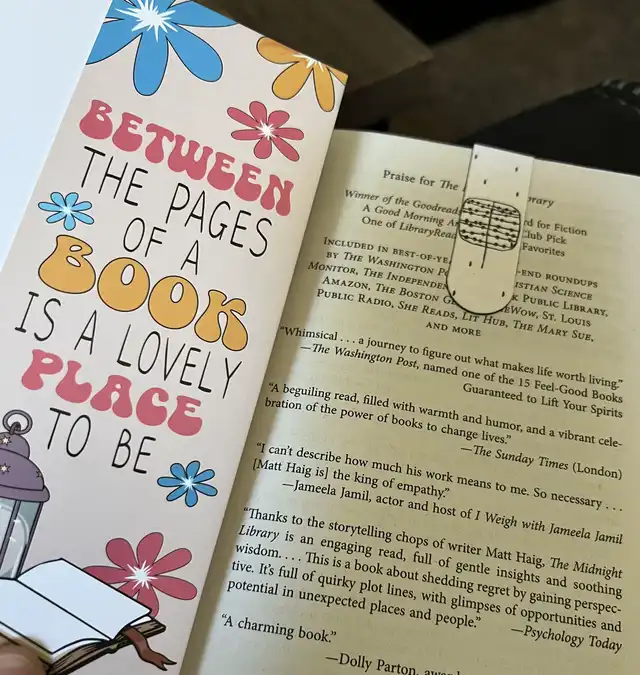 BETWEEN
THE PAGES
OF A
BOOK
IS A LOVELY
PLACE
TO BE
Praise for The rary
Winner of the Goodreads d for Fiction
A Good Morning A Club Pick
One of LibraryRead Favorites
INCLUDED IN BEST-OF-YE -END ROUNDUPS
BY THE WASHINGTON P STIAN SCIENCE
MONITOR, THE INDEPENDEN K PUBLIC LIBRARY,
AMAZON, THE BOSTON G EWOW, ST. LOUIS
PUBLIC RADIO, SHE READS, LIT HUB, THE MARY SUE,
AND MORE
"Whimsical . . . a journey to figure out what makes life worth living."
—The Washington Post, named one of the 15 Feel-Good Books
Guaranteed to Lift Your Spirits
"A beguiling read, filled with warmth and humor, and a vibrant cele-
bration of the power of books to change lives."
—The Sunday Times (London)
"I can't describe how much his work means to me. So necessary . . .
[Matt Haig is] the king of empathy."
—Jameela Jamil, actor and host of I Weigh with Jameela Jamil
"Thanks to the storytelling chops of writer Matt Haig, The Midnight
Library is an engaging read, full of gentle insights and soothing
wisdom. . . . This is a book about shedding regret by gaining perspec-
tive. It's full of quirky plot lines, with glimpses of opportunities and
potential in unexpected places and people."
—Psychology Today
"A charming book."
—Dolly Parton,